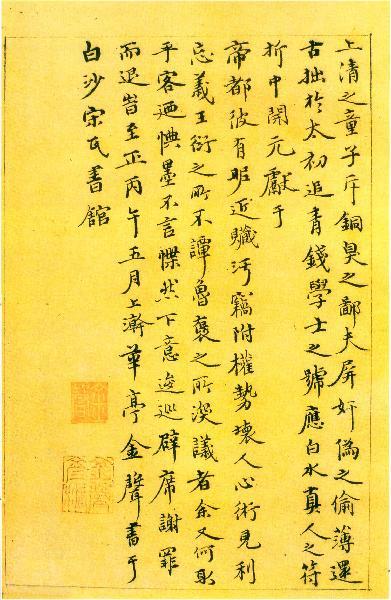 上清之童子斥銅臭之鄙夫屏奸偽之倫薄還
古拙於太初追青錢學士之號應白水真人之符
折中開元獻于
帝都彼有昵近贓污竊附權勢壞人心術見利
忘義王衍之所不譚魯褒之所深議者余又何取
乎客迺愧墨不言然下意逡巡辟席謝罪
而退旹至正丙午五月上澣華亭金聲書于
白沙宋氏書館